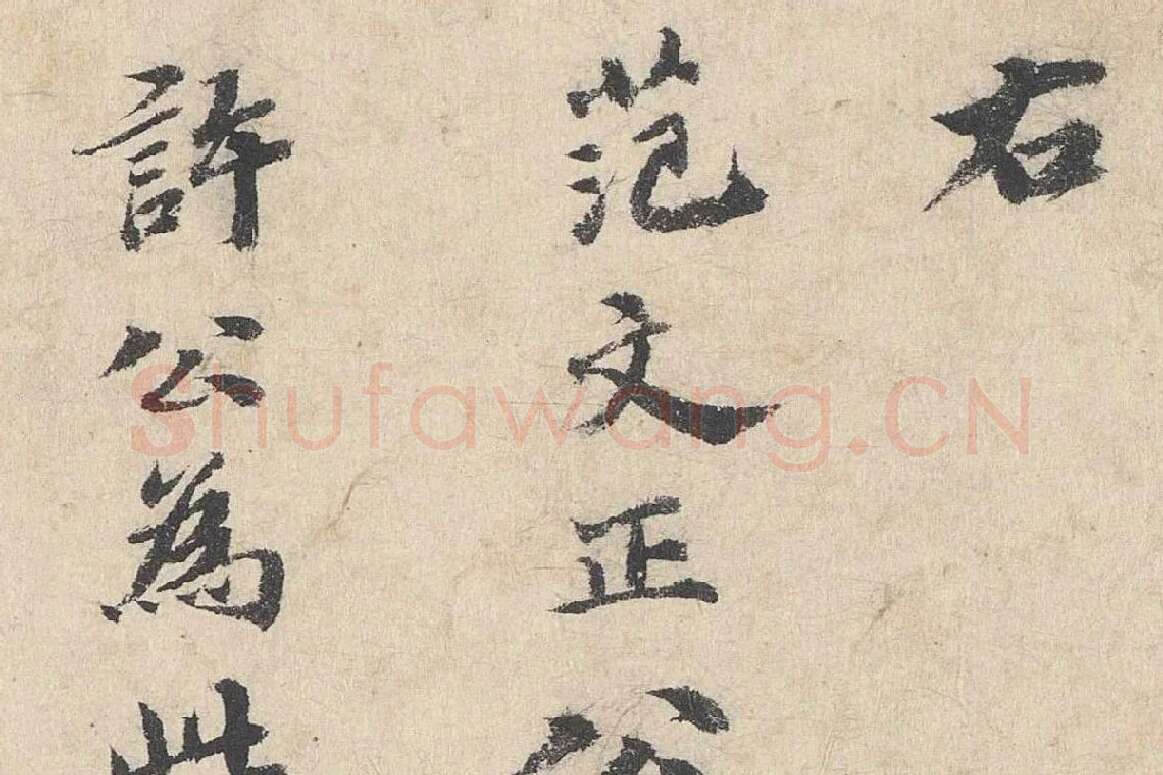 右
范文正公
許公為此
Shufawang.CN